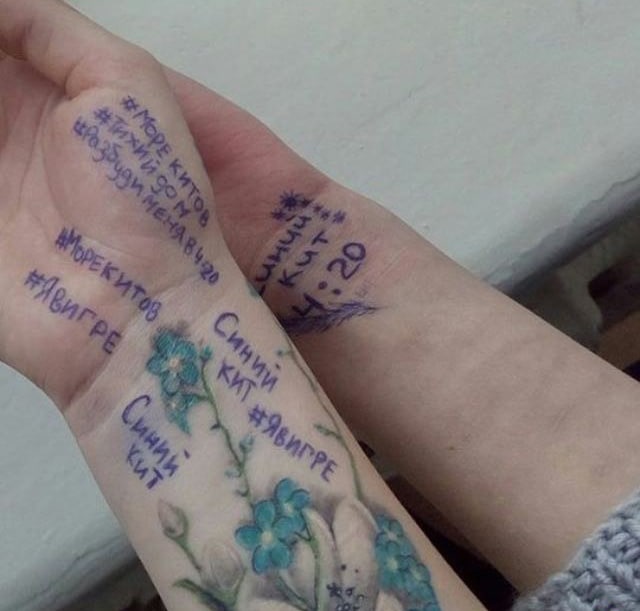 #МОРЕ КИТОВ
#ТИХИЙ ДОМ
#РАЗБУДИ МЕНЯ В 4:20
#МОРЕКИТОВ
#ЯВИГРЕ
Синий
кит
#ЯВИГРЕ
Синий
кит
КИТ
4:20